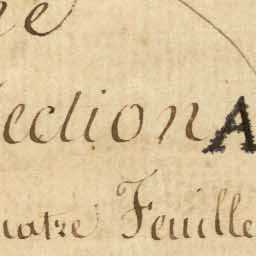 e
ection A
uatre Feuille